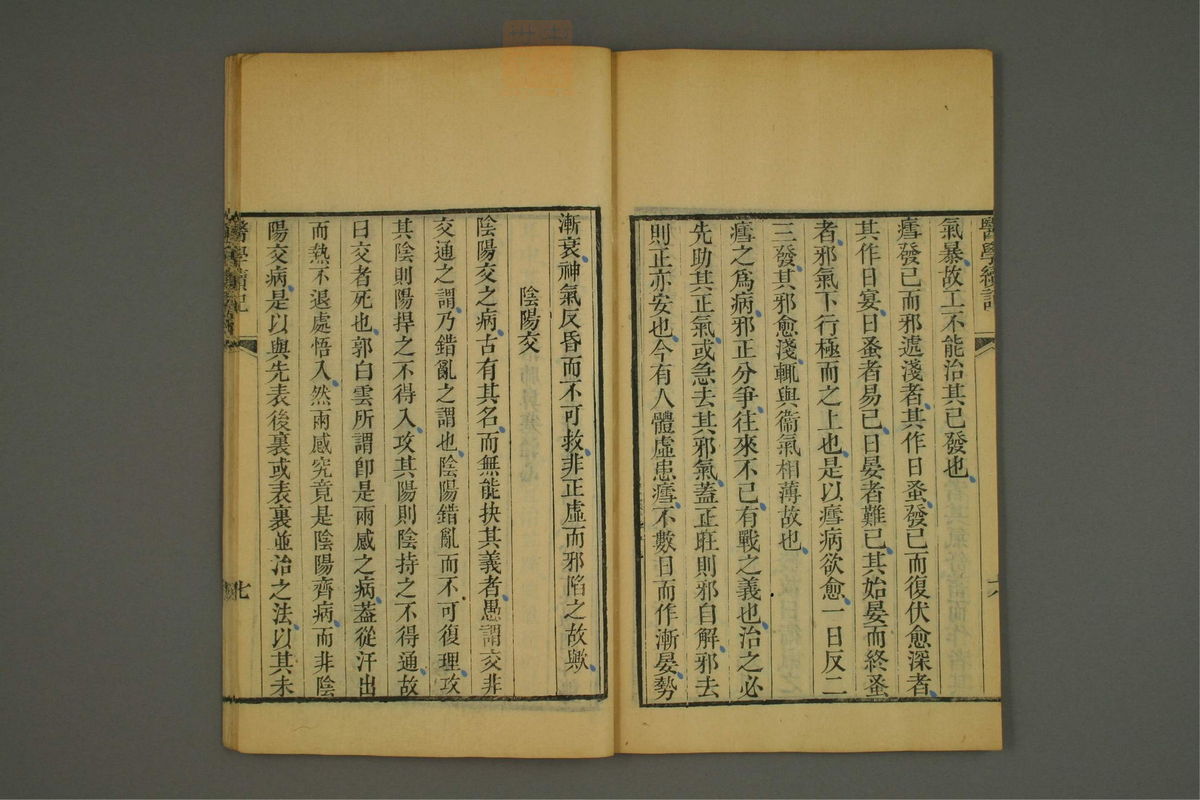 醫學續記
氣暴故工不能治其已發也
瘧發已而邪遽淺者其作日蚤發已而復伏愈深者
其作日宴日蚤者易已日晏者難已其始晏而終蚤
者邪氣下行極而之上也是以瘧病欲愈一日反二
三發其邪愈淺輒與衞氣相薄故也
瘧之爲病邪正分爭往來不已有戰之義也治之必
先助其正氣或急去其邪氣蓋正旺則邪自解邪去
則正亦安也今有人體虛患瘧不數日而作漸晏勢
六
漸衰神氣反昏而不可救非正虛而邪陷之故歟
陰陽交
陰陽交之病古有其名而無能抉其義者愚謂交非
交通之謂乃錯亂之謂也陰陽錯亂而不可復理攻
其陰則陽捍之不得入攻其陽則陰持之不得通故
曰交者死也郭白雲所謂卽是兩感之病葢從汗出
而熱不退處悟入然兩感究竟是陰陽齊病而非陰
陽交病是以與先表後裏或表裏並治之法以其未
醫學續記
七